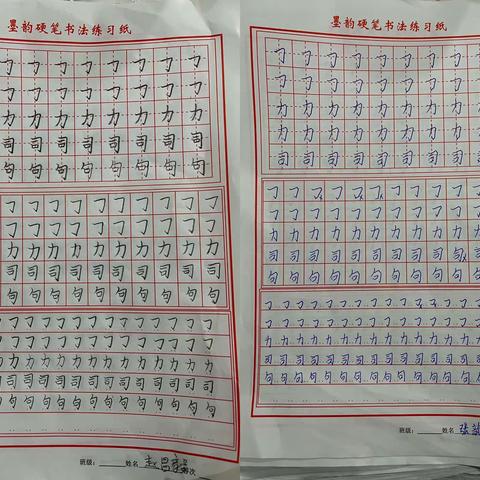 墨韵硬笔书法练习纸
𠃌 𠃌 𠃌 𠃌 𠃌 𠃌 𠃌 𠃌
𠃌 𠃌 𠃌 𠃌 𠃌 𠃌 𠃌 𠃌
力 力 力 力 力 力 力 力
司 司 司 司 司 司 司 司
句 句 句 句 句 句 句 句
𠃌 𠃌 𠃌 𠃌 𠃌 𠃌 𠃌 𠃌 𠃌 𠃌
𠃌 𠃌 𠃌 𠃌 𠃌 𠃌 𠃌 𠃌 𠃌 𠃌
力 力 力 力 力 力 力 力 力 力
司 司 司 司 司 司 司 司 司 司
句 句 句 句 句 句 句 句 句 句
𠃌 𠃌 𠃌 𠃌 𠃌 𠃌 𠃌 𠃌 𠃌 𠃌 𠃌 𠃌
𠃌 𠃌 𠃌 𠃌 𠃌 𠃌 𠃌 𠃌 𠃌 𠃌 𠃌 𠃌
力 力 力 力 力 力 力 力 力 力 力 力
司 司 司 司 司 司 司 司 司 司 司 司
句 句 句 句 句 句 句 句 句 句 句 句
班级： 姓名 赵昌 次
墨韵硬笔书法练习纸
𠃌 𠃌 𠃌 𠃌 𠃌 𠃌 𠃌 𠃌 𠃌
𠃌 𠃌 𠃌 𠃌 𠃌 𠃌 𠃌 𠃌 𠃌
力 力 力 力 力 力 力 力 力
力 力 力 力 力 力 力 力 力
司 司 司 司 司 司 司 司 司
𠃌 𠃌 𠃌 𠃌 𠃌 𠃌 𠃌 𠃌 𠃌 𠃌 𠃌
𠃌 𠃌 𠃌 𠃌 𠃌 𠃌 𠃌 𠃌 𠃌 𠃌 𠃌
力 力 力 力 力 力 力 力 力 力 力
司 司 司 司 司 司 司 司 司 司 司
句 句 句 句 句 句 句 句 句 句 句
𠃌 𠃌 𠃌 𠃌 𠃌 𠃌 𠃌 𠃌 𠃌 𠃌 𠃌 𠃌 𠃌 𠃌
𠃌 𠃌 𠃌 𠃌 𠃌 𠃌 𠃌 𠃌 𠃌 𠃌 𠃌 𠃌 𠃌 𠃌
力 力 力 力 力 力 力 力 力 力 力 力 力 力
司 司 司 司 司 司 司 司 司 司 司 司 司 司
句 句 句 句 句 句 句 句 句 句 句 句 句 句
班级： 姓名 张